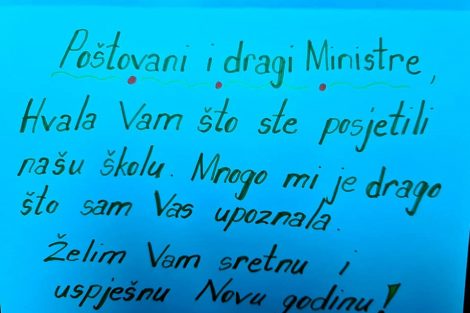 Poštovani i dragi Ministre,
Hvala Vam što ste posjetili
našu školu. Mnogo mi je drago
što sam Vas upoznala.
Želim Vam sretnu i
uspješnu Novu godinu!